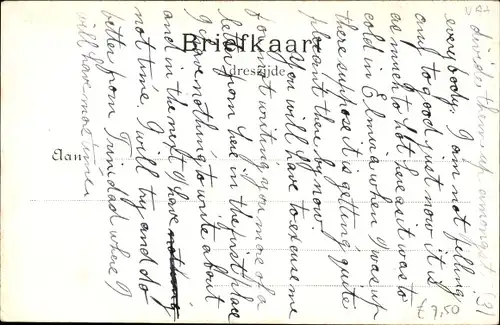 Briefkaart
Adreszijde
Aan
divide them up amongst
everybody. I am not felling
any to good just now it is
as much to hot here as it was to
cold in Elmira when I was up
there suppose it is getting quite
plesant there by now.
You will have to excuse me
for not writing you more of a
letter from here in the first place
I have nothing to write about
and in the next I have nothing
not time. I will try and do
better from Trinidad where I
will have more time
£ 7,50